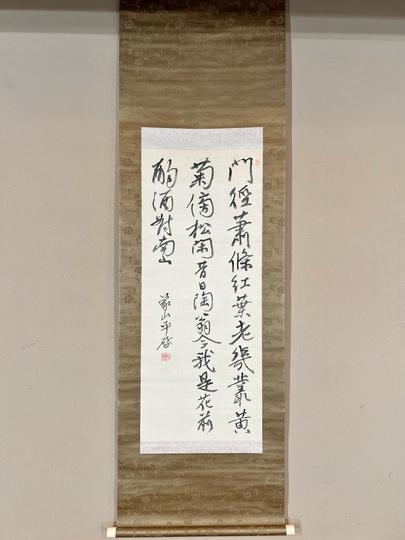 門徑蕭條紅葉老幾叢黃
菊傍松閑昔日陶翁今我是花前
酌酒對南山
山平